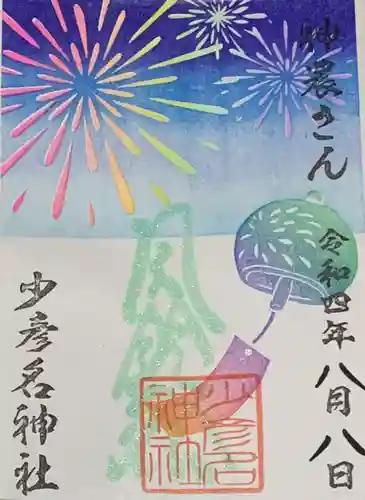 神農さん
令和四年八月八日
少彦名神社
少彦名
神社